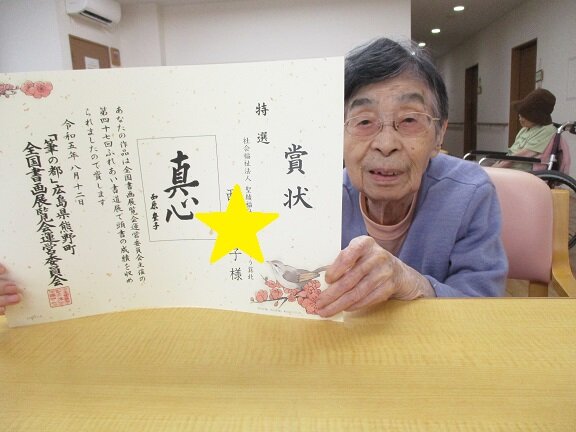 賞状
特選
社会福祉法人
子様
真心
あなたの作品は全国書画展覧会運営委員会主催の
第四十七回ふれあい書道展で頭書の成績を収め
られましたので賞します
令和五年八月十二日
「筆の都」広島県熊野町
全国書画展覧会運営委員会